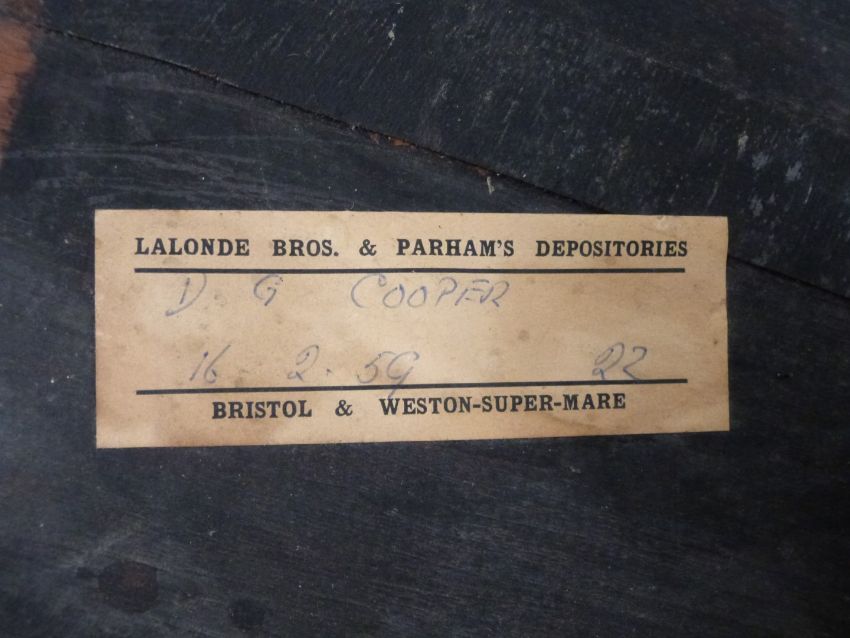 LALONDE BROS. & PARHAM'S DEPOSITORIES
D G COOPER
16 - 2 . 59 22
BRISTOL & WESTON-SUPER-MARE